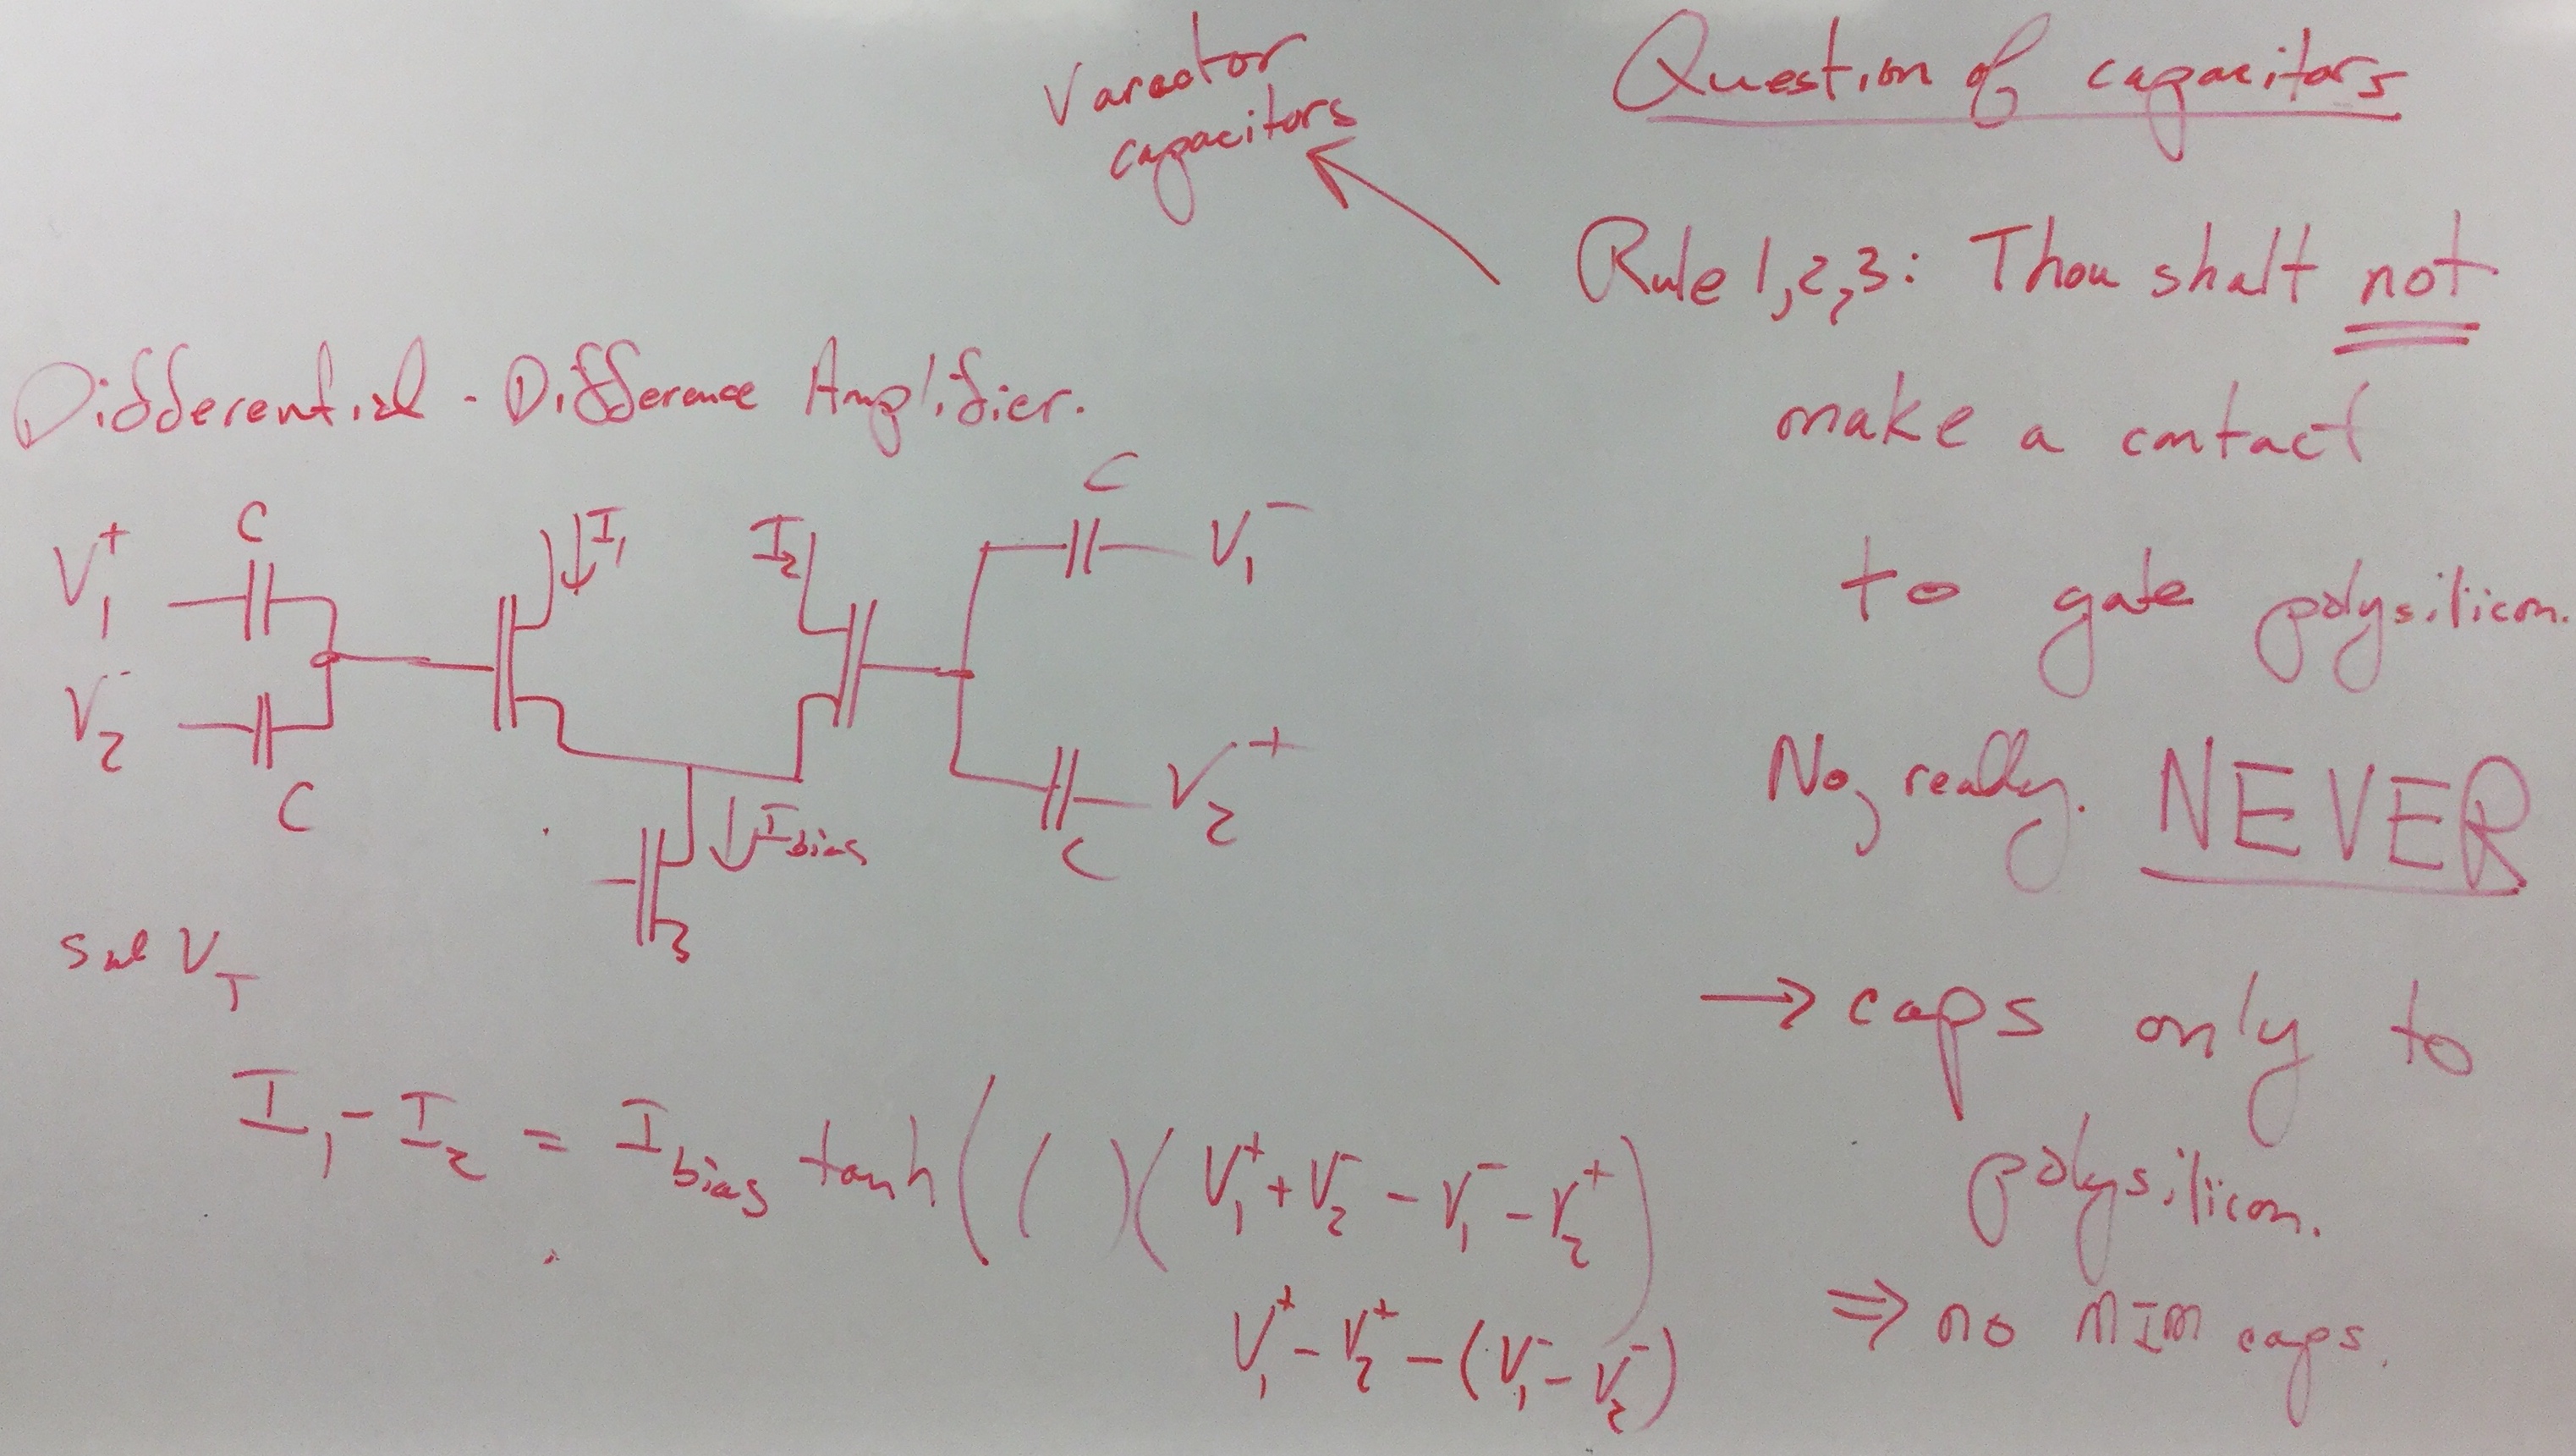 Varactor
capacitors
Question of capacitors
Rule 1,2,3: Thou shalt not
make a contact
to gate polysilicon.
No, really. NEVER
→ caps only to
polysilicon.
⇒ no MIM caps.
Differential - Difference Amplifier.
V₁⁺ C
V₂⁻ C
I₁
I₂
C V₁⁻
C V₂⁺
I_bias
sub V_T
I₁ - I₂ = I_bias tanh( ( )( V₁⁺ + V₂⁻ - V₁⁻ - V₂⁺ )
V₁⁺ - V₂⁺ - (V₁⁻ - V₂⁻)